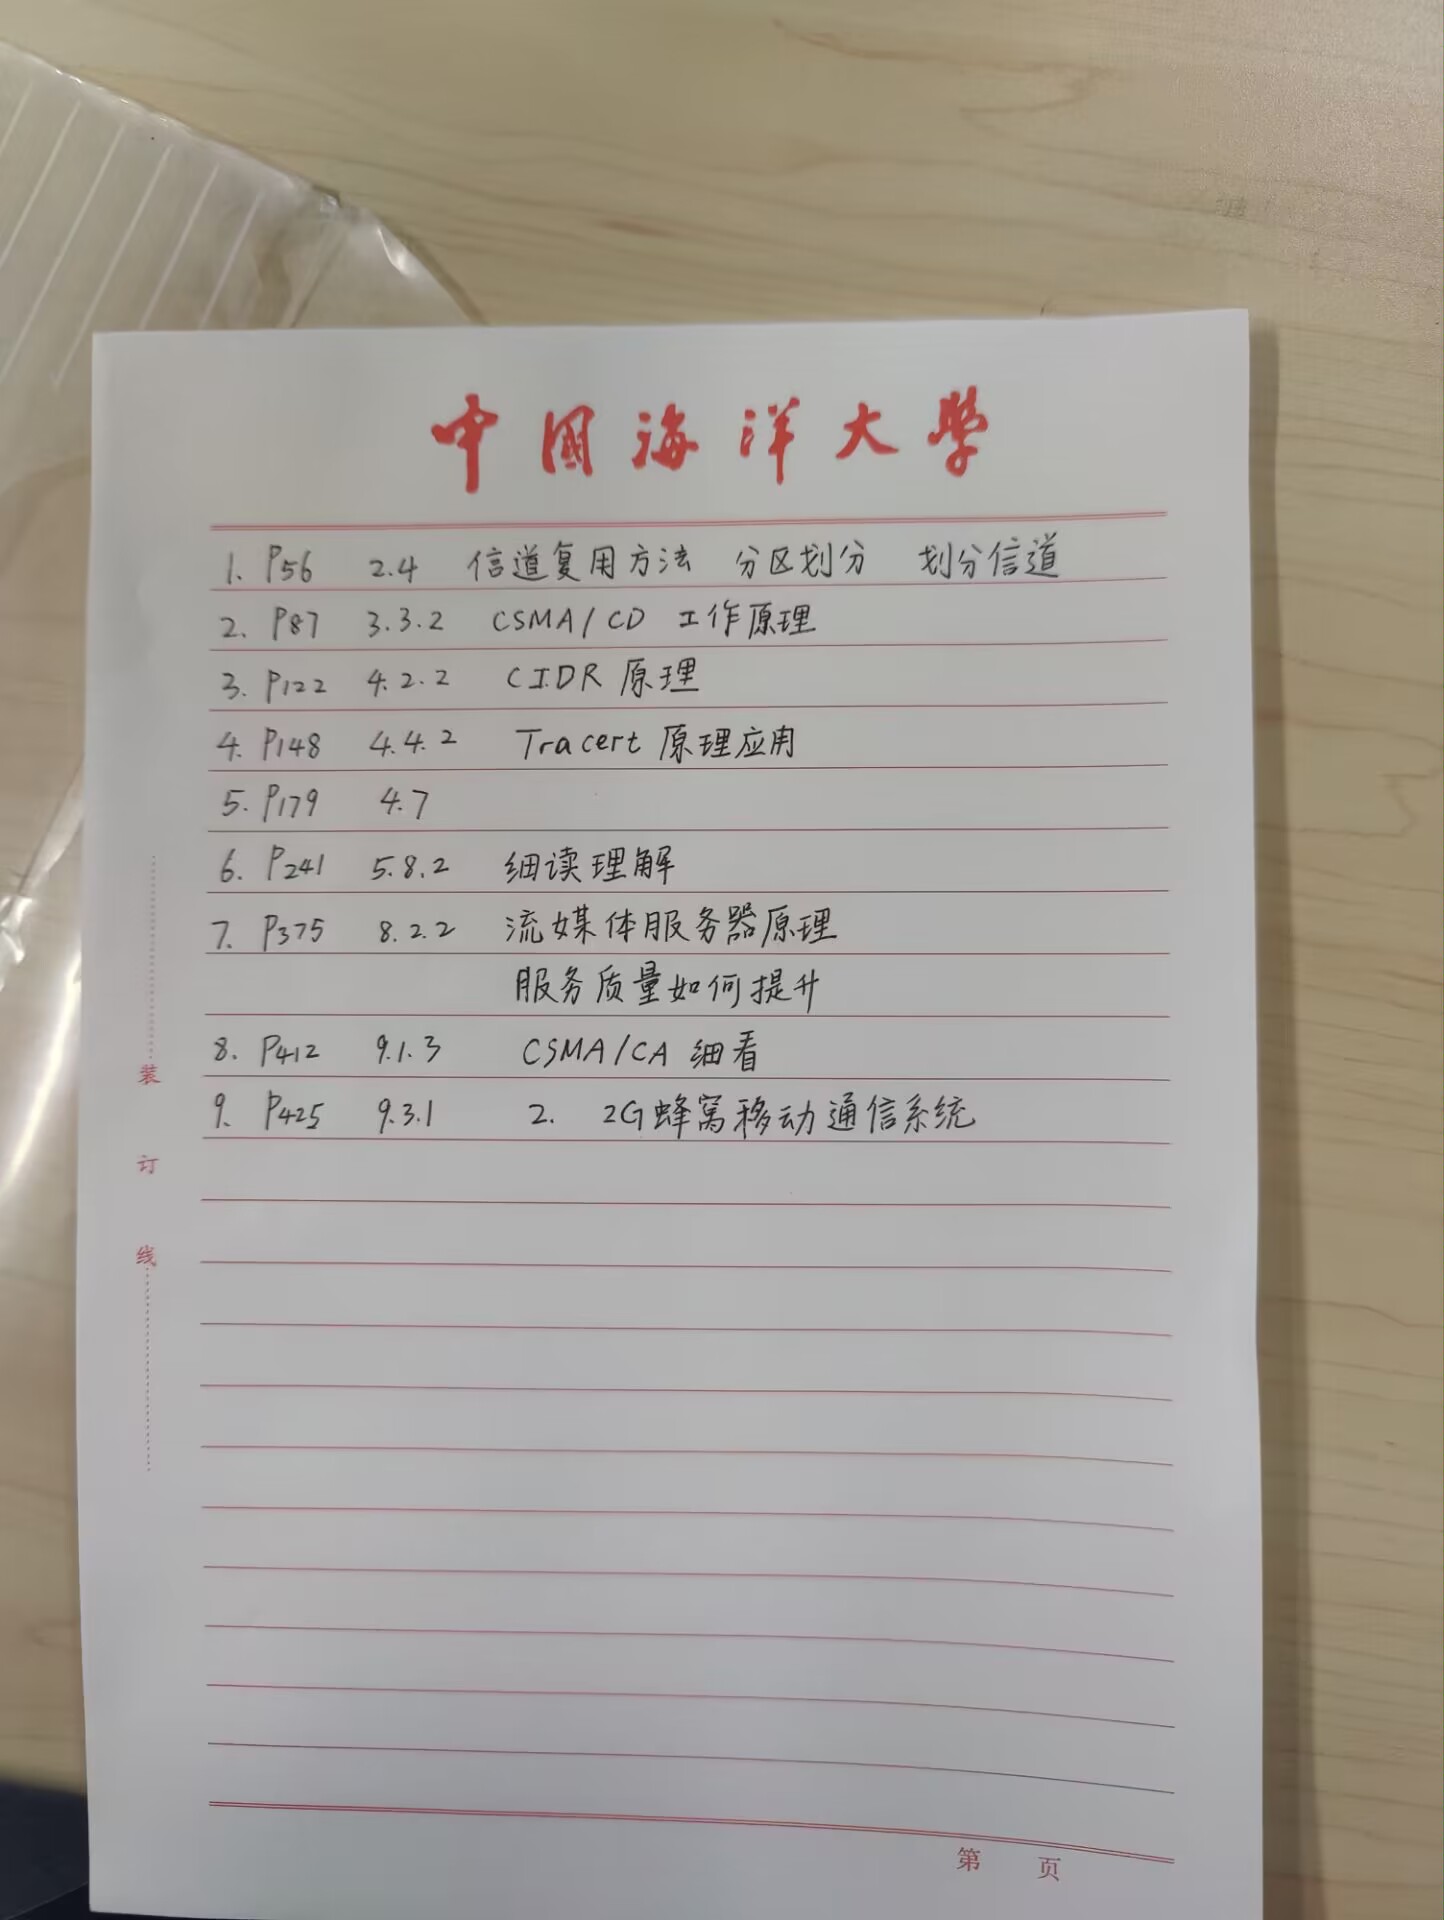 中国海洋大学
1. P56 2.4 信道复用方法 分区划分 划分信道
2. P87 3.3.2 CSMA/CD 工作原理
3. P122 4.2.2 CIDR 原理
4. P148 4.4.2 Tracert 原理应用
5. P179 4.7
6. P241 5.8.2 细读理解
7. P375 8.2.2 流媒体服务器原理
服务质量如何提升
8. P412 9.1.3 CSMA/CA 细看
9. P425 9.3.1 2. 2G蜂窝移动通信系统
装
订
线
第 页